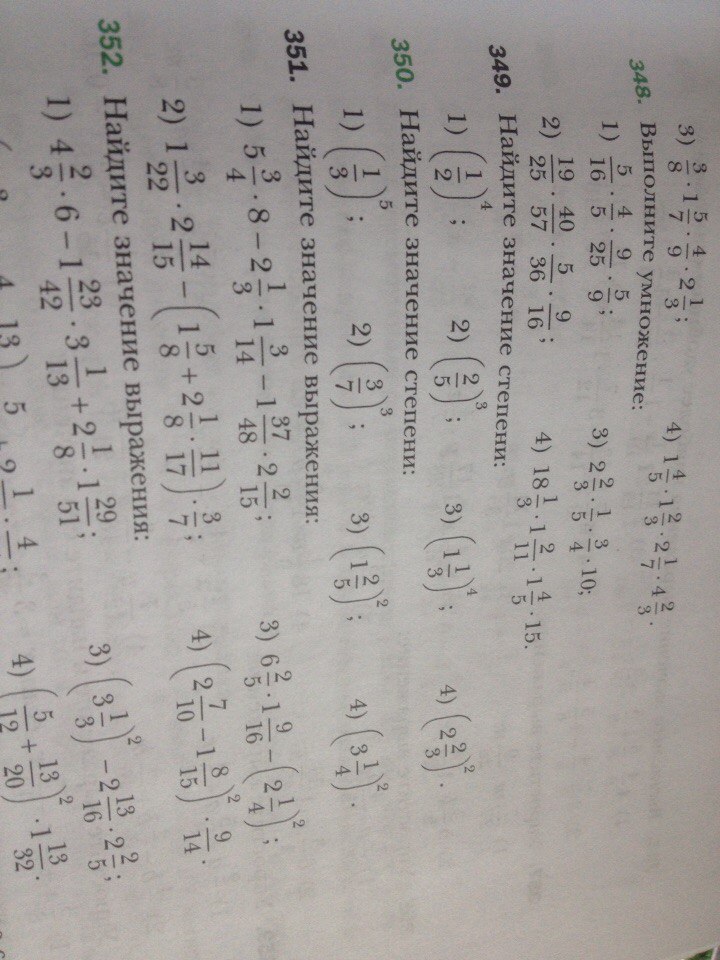 3) 3/8 · 1 5/7 · 4/9 · 2 1/3; 4) 1 4/5 · 1 2/3 · 2 1/7 · 4 2/3.
348. Выполните умножение:
1) 5/16 · 4/5 · 9/25 · 5/9; 3) 2 2/3 · 1/5 · 3/4 · 10;
2) 19/25 · 40/57 · 5/36 · 9/16; 4) 18 1/3 · 1 2/11 · 1 4/5 · 15.
349. Найдите значение степени:
1) (1/2)⁴; 2) (2/5)³; 3) (1 1/3)⁴; 4) (2 2/3)².
350. Найдите значение степени:
1) (1/3)⁵; 2) (3/7)³; 3) (1 2/5)²; 4) (3 1/4)².
351. Найдите значение выражения:
1) 5 3/4 · 8 − 2 1/3 · 1 3/14 − 1 37/48 · 2 2/15; 3) 6 2/5 · 1 9/16 − (2 1/4)²;
2) 1 3/22 · 2 14/15 − (1 5/8 + 2 1/8 · 11/17) · 3/7; 4) (2 7/10 − 1 8/15)² · 9/14.
352. Найдите значение выражения:
1) 4 2/3 · 6 − 1 23/42 · 3 1/13 + 2 1/8 · 1 29/51; 3) (3 1/3)² − 2 13/16 · 2 2/5;
4) (5/12 + 13/20)² · 1 13/32.